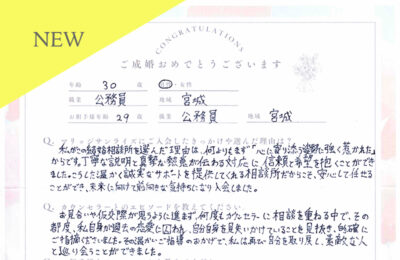 NEW
CONGRATULATIONS
ご成婚おめでとうございます
年齢 30 歳 男性・女性
職業 公務員 地域 宮城
お相手様年齢 29 歳 職業 公務員 地域 宮城
Q. ブリッジサンライズにご入会したきっかけや選んだ理由は？
私がこの結婚相談所を選んだ理由は、何よりもまず"心に寄り添う姿勢に強く惹かれた"
からです。丁寧な説明と真摯な熱意が伝わる対応に、信頼と希望を抱くことができ
ました。こうした温かく誠実なサポートを提供してくれる相談所だからこそ、安心して任せ
ることができ、未来に向けて前向きな気持ちになり入会しました。
Q. カウンセラーとのエピソードを教えてください
お見合いや仮交際が思うように進まず、何度もカウンセラーに相談を重ねる中で、その
都度、私自身が過去の恋愛に囚われ、自分自身を見失いかけていることを見抜き、的確に
ご指摘くださいました。その温かいご指導のおかげで、私は改めて自分を取り戻し、素敵な人
と巡り会うことができました。